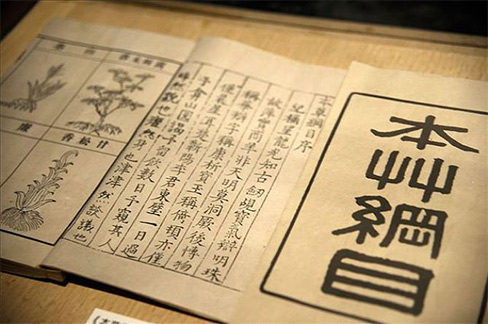 本艸綱目
本草綱目序
紀稱望龍光知古劒覘寶氣辯明珠
故萍實商羊非天明莫洞厥後博物
稱華辯字稱康析寶玉稱倚頓亦僅
僅晨星耳楚蘄陽李君東璧一日過
予弇山園謁予留飲數日予窺其人
睟然貌也癯然身也津津然談議也
甘松香